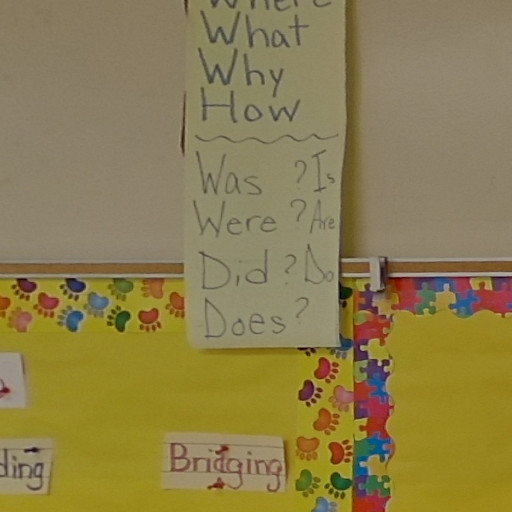 Where
What
Why
How
Was ? Is
Were ? Are
Did ? Do
Does ?
ding
Bridging